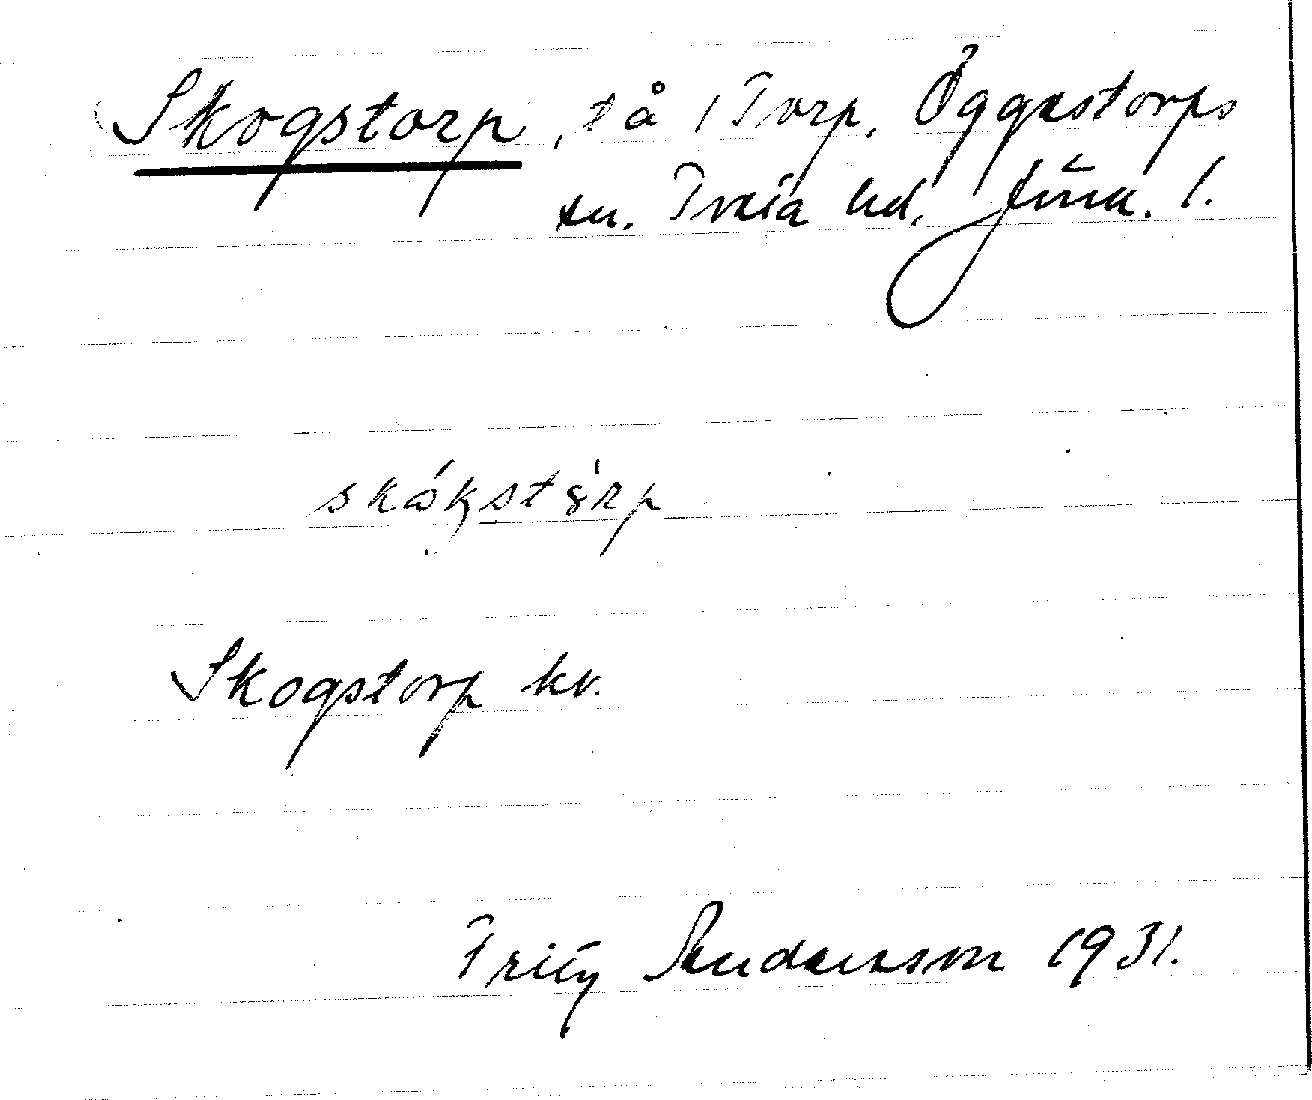 Skogstorp, t å 1 Torp, Öggestorps
sn. Tveta hd, Jönk. l.
skókstòrp
Skogstorp kv.
Fritz Andersson 1931.